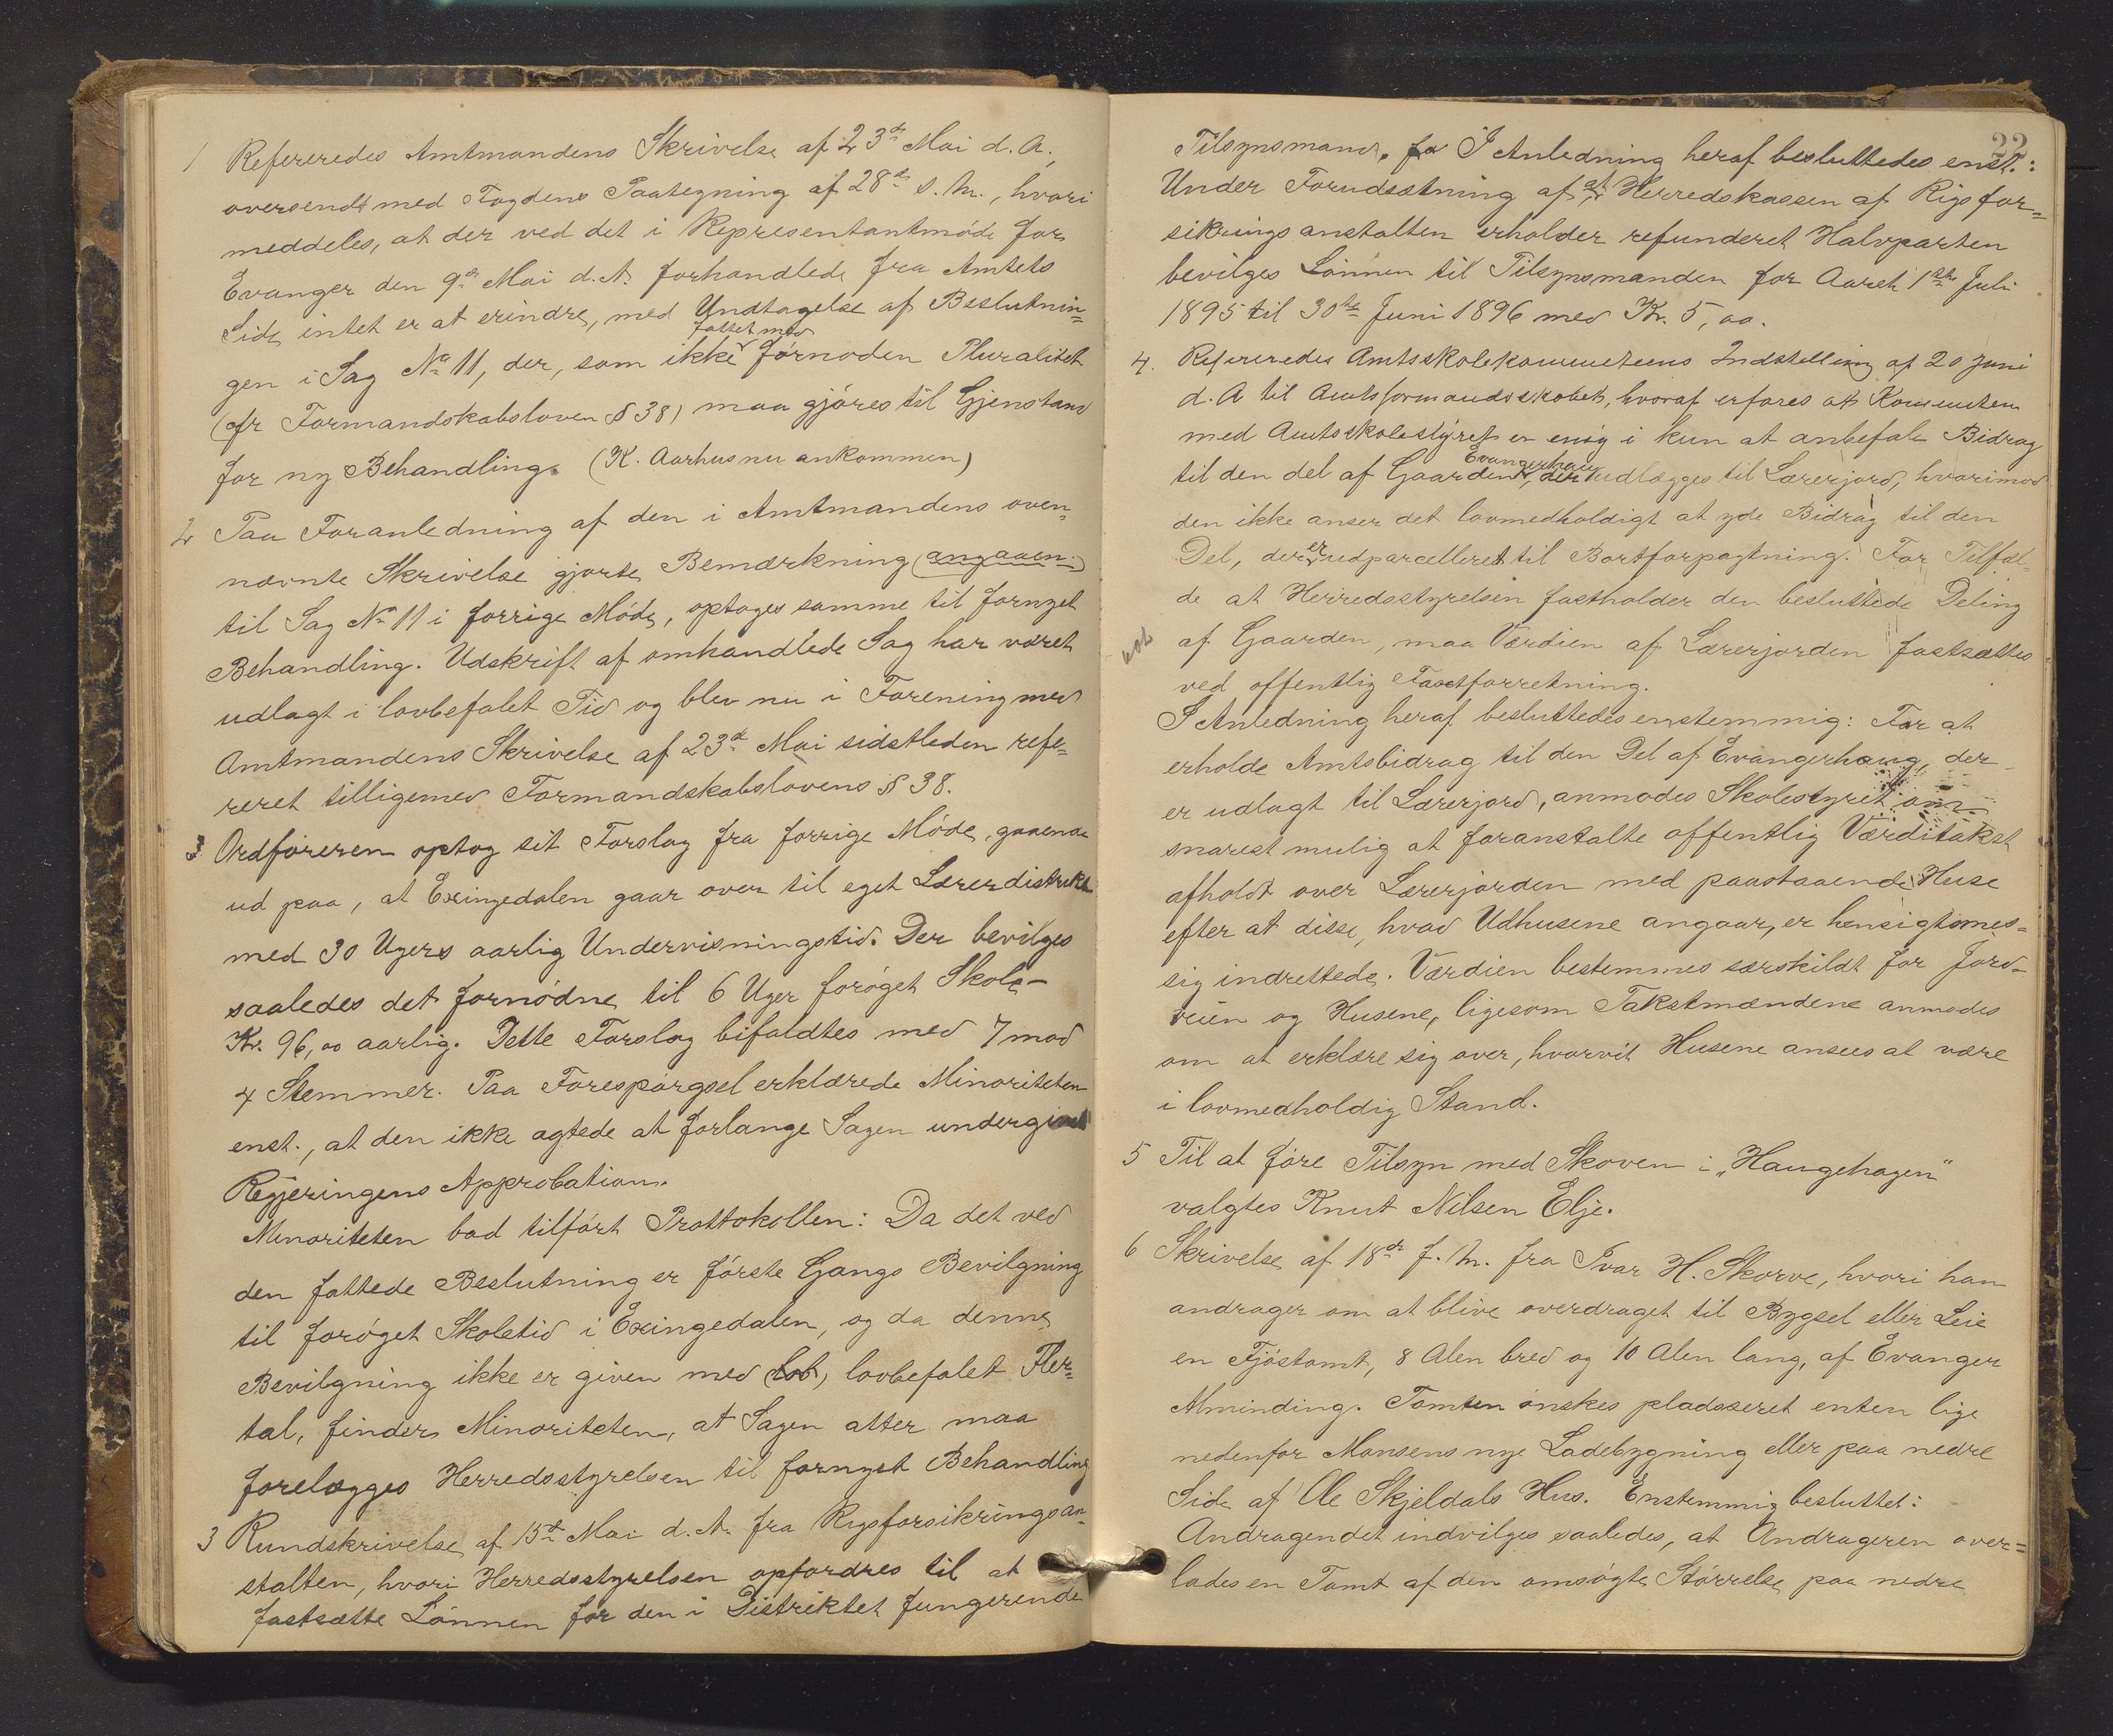 1 Refereredes Amtmandens Skrivelse af 23de Mai d. A.,
oversendt med Fogdens Paategning af 28de s. M., hvori
meddeles, at der ved det i Representantmöde for
Evanger den 9de Mai d. A. forhandlede fra Amtets
Side intet er at erindre, med Undtagelse af Beslutnin=
gen i Sag No 11, der, som ikke fattet med förnoden Pluralitet
(cfr Formandskabsloven § 38) maa gjöres til Gjenstand
for ny Behandling. (K. Aarhus nu ankommen)
2 Paa Foranledning af den i Amtmandens oven=
nævnte Skrivelse gjorte Bemærkning (angaaen)
til Sag No 11 i forrige Möde, optoges samme til fornyet
Behandling. Udskrift af omhandlede Sag har været
udlagt i lovbefalet Tid og blev nu i Forening med
Amtmandens Skrivelse af 23de Mai sidstleden refe=
reret tilligemed Formandskabslovens § 38.
3 Ordföreren optog sit Forslag fra forrige Möde, gaaende
ud paa, at Exingedalen gaar over til eget Lærerdistrikt
med 30 Ugers aarlig Undervisningstid. Der bevilges
saaledes det fornödne til 6 Uger foröget Skole-
Kr. 96,00 aarlig. Dette Forslag bifaldtes med 7 mod
4 Stemmer. Paa Forespörgsel erklærede Minoriteten
enst., at den ikke agtede at forlange Sagen undergivet
Regjeringens Approbation.
Minoriteten bad tilfört Prottokollen: Da det ved
den fattede Beslutning er förste Gangs Bevilgning
til foröget Skoletid i Exingedalen, og da denne
Bevilgning ikke er given med (lob) lovbefalet Fler=
tal, finder Minoriteten, at Sagen atter maa
forelægges Herredsstyrelsen til fornyet Behandling
3 Rundskrivelse af 15de Mai d. A. fra Rigsforsikringsan=
stalten, hvori Herredsstyrelsen opfordres til at
fastsætte Lönnen for den i Distriktet fungerende
22
Tilsynsmand. I Anledning heraf besluttedes enst.:
Under Forudsætning af, at Herredskassen af Rigsfor=
sikringsanstalten erholder refunderet Halvparten
bevilges Lönnen til Tilsynsmanden for Aaret 1ste Juli
1895 til 30te Juni 1896 med Kr. 5,00.
4. Refereredes Amtsskolekommiteens Indstelling af 20 Juni
d. A til Amtsformandsskabet, hvoraf erfares at Kommiteen
med Amtsskolestyret er enig i kun at anbefale Bidrag
til den del af Gaarden Evangerhaug, der udlægges til Lærerjord, hvorimod
den ikke anser det lovmedholdigt at yde Bidrag til den
Del, der er udparcelleret til Bortforpagtning. For Tilfæl-
de at Herredsstyrelsen fastholder den besluttede Deling
af Gaarden, maa Værdien af Lærerjorden fastsættes
ved offentlig Taxtforretning.
I Anledning heraf besluttedes enstemmig: For at
erholde Amtsbidrag til den Del af Evangerhaug, der
er udlagt til Lærerjord, anmodes Skolestyret om
snarest mulig at foranstalte offentlig Værditakst
afholdt over Lærerjorden med paastaaende Huse
efter at disse, hvad Udhusene angaar, er hensigtsmes=
sig indrettede. Værdien bestemmes særskildt for Jord-
veien og Husene, ligesom Takstmændene anmodes
om at erklære sig over, hvorvit Husene ansees at være
i lovmedholdig Stand.
5 Til at före Tilsyn med Skoven i „Haugehagen"
valgtes Knut Nilsen Elje.
6 Skrivelse af 18de f. M. fra Ivar H. Skorve, hvori han
andrager om at blive overdraget til Bygsel eller Leie
en Fjöstomt, 8 Alen bred og 10 Alen lang, af Evanger
Alminding. Tomten önskes pladsseret enten lige
nedenfor Monsens nye Ladebygning eller paa nedre
Side af Ole Skjeldals Hus. Enstemmig besluttet:
Andragendet indvilges saaledes, at Andrageren over=
lades en Tomt af den omsögte Störrelse paa nedre